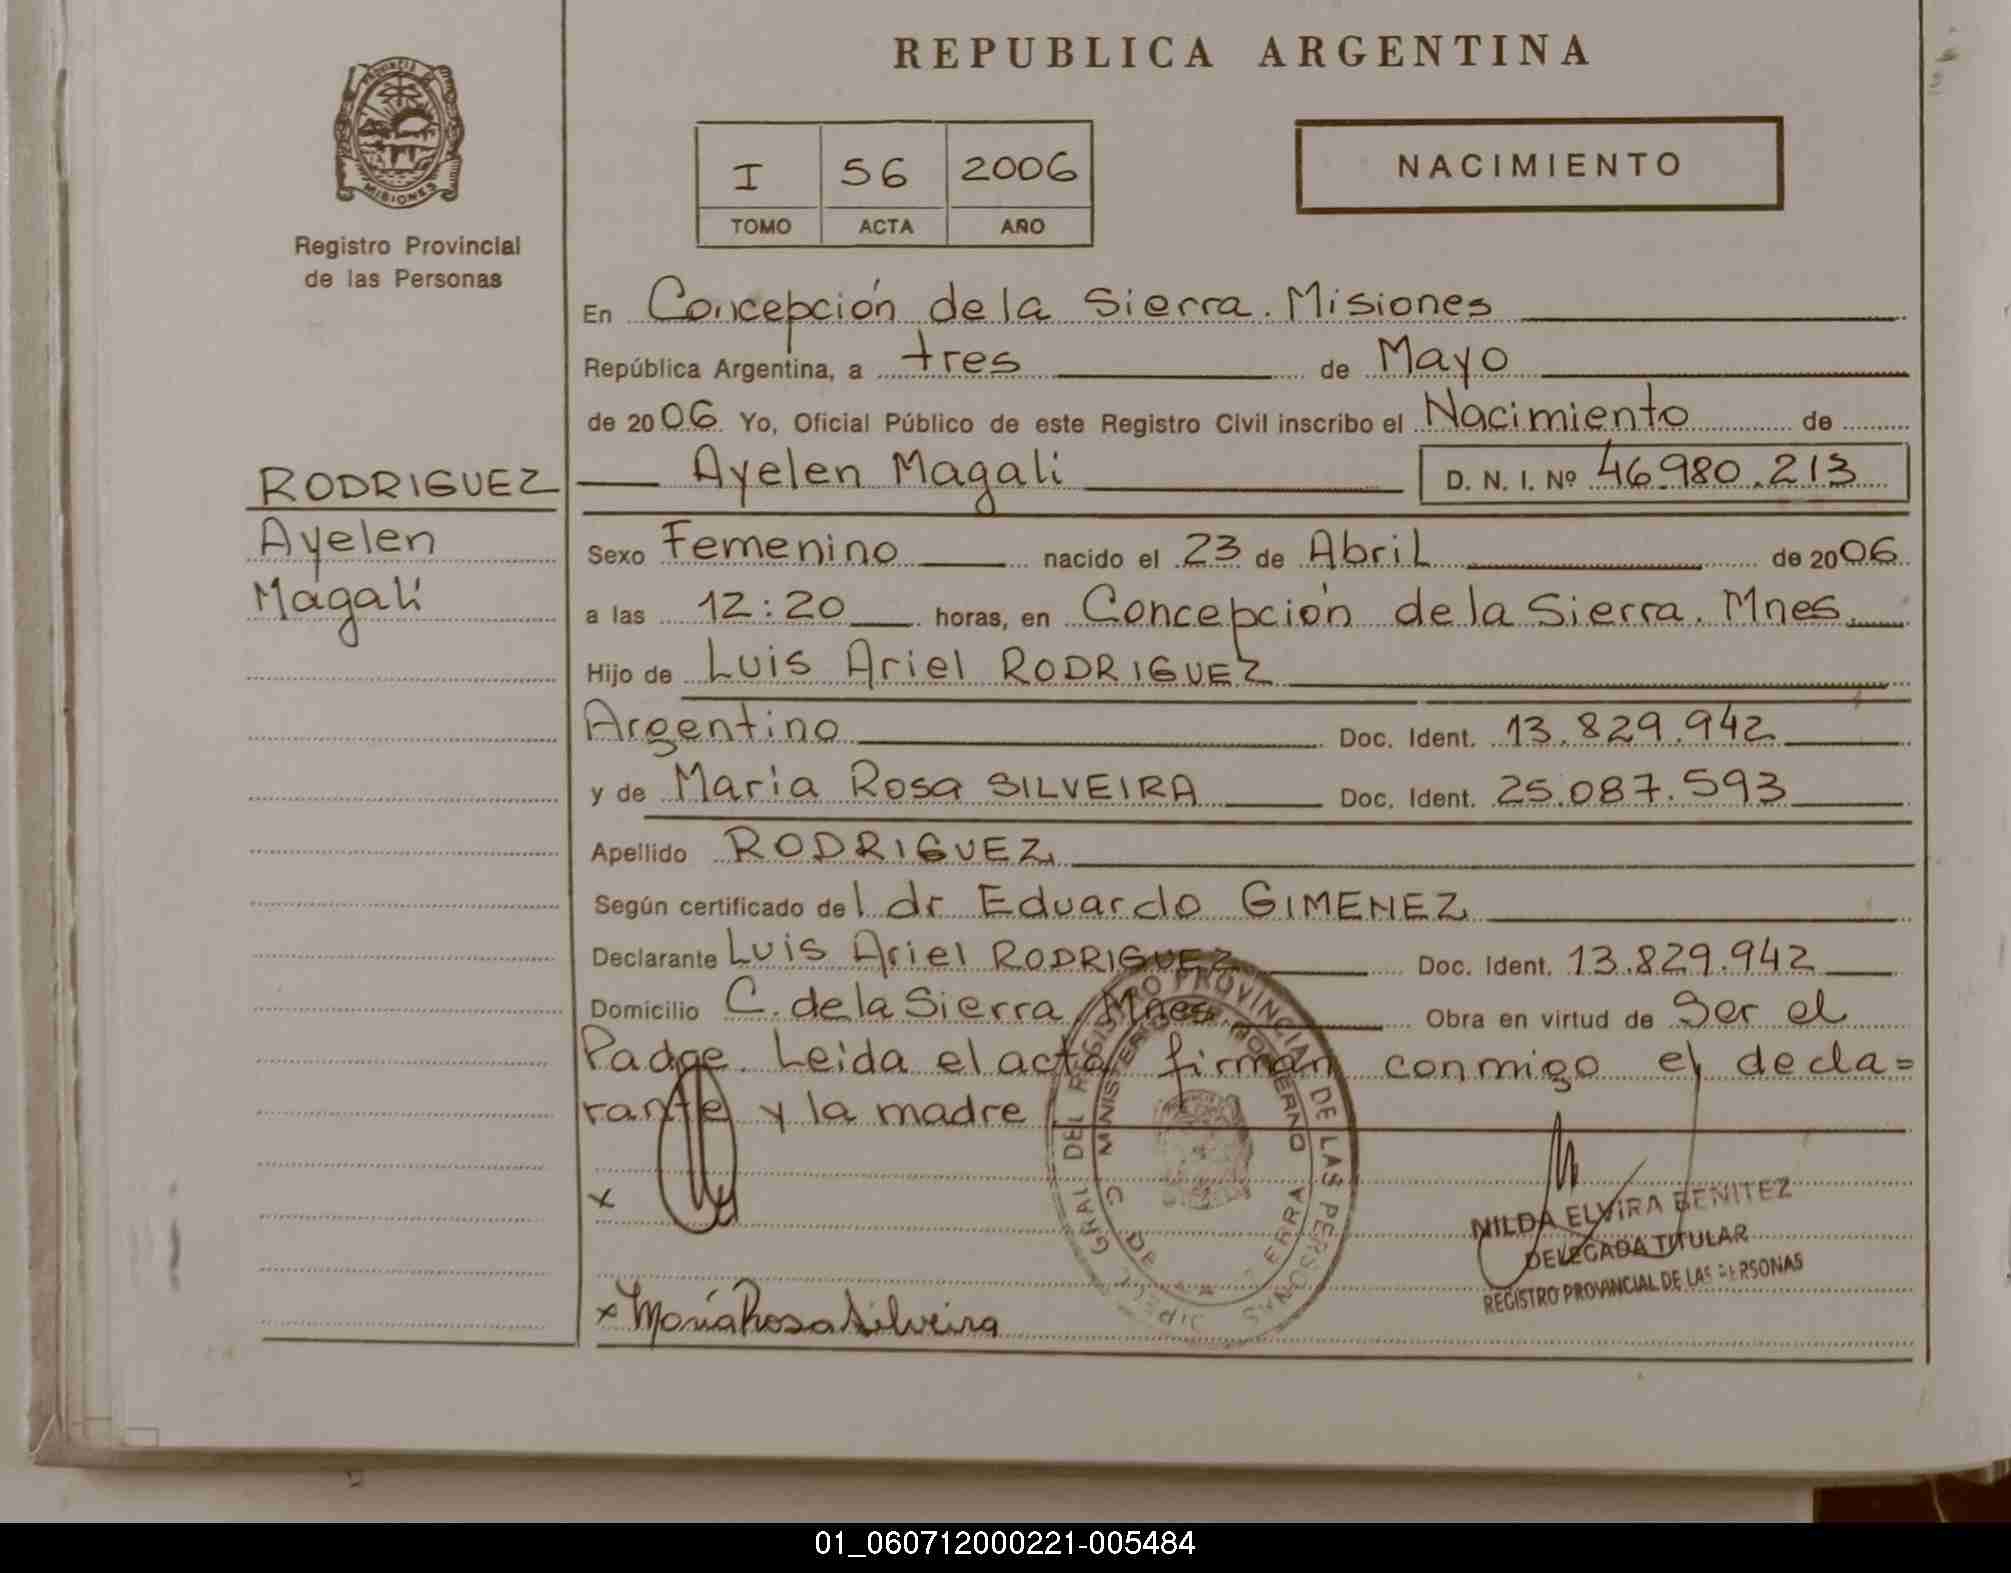 REPUBLICA ARGENTINA
PROVINCIA DE
MISIONES
Registro Provincial
de las Personas
I 56 2006
TOMO ACTA AÑO
NACIMIENTO
En Concepción de la Sierra. Misiones
República Argentina, a tres de Mayo
de 2006 Yo, Oficial Público de este Registro Civil inscribo el Nacimiento de
Ayelen Magali D. N. I. Nº 46.980.213
RODRIGUEZ
Ayelen
Magali
Sexo Femenino nacido el 23 de Abril de 2006
a las 12:20 horas, en Concepción de la Sierra. Mnes.
Hijo de Luis Ariel RODRIGUEZ
Argentino Doc. Ident. 13.829.942
y de Maria Rosa SILVEIRA Doc. Ident. 25.087.593
Apellido RODRIGUEZ
Según certificado del dr Eduardo GIMENEZ
Declarante Luis Ariel RODRIGUEZ Doc. Ident. 13.829.942
Domicilio C. de la Sierra Mnes Obra en virtud de Ser el
Padre. Leida el acta firman conmigo el decla=
rante y la madre
x
x María Rosa Silveira
GRAL DEL REGISTRO PROVINCIAL DE LAS PERSONAS
MINISTERIO DE GOBIERNO
NILDA ELVIRA BENITEZ
DELEGADA TITULAR
REGISTRO PROVINCIAL DE LAS PERSONAS
01_060712000221-005484